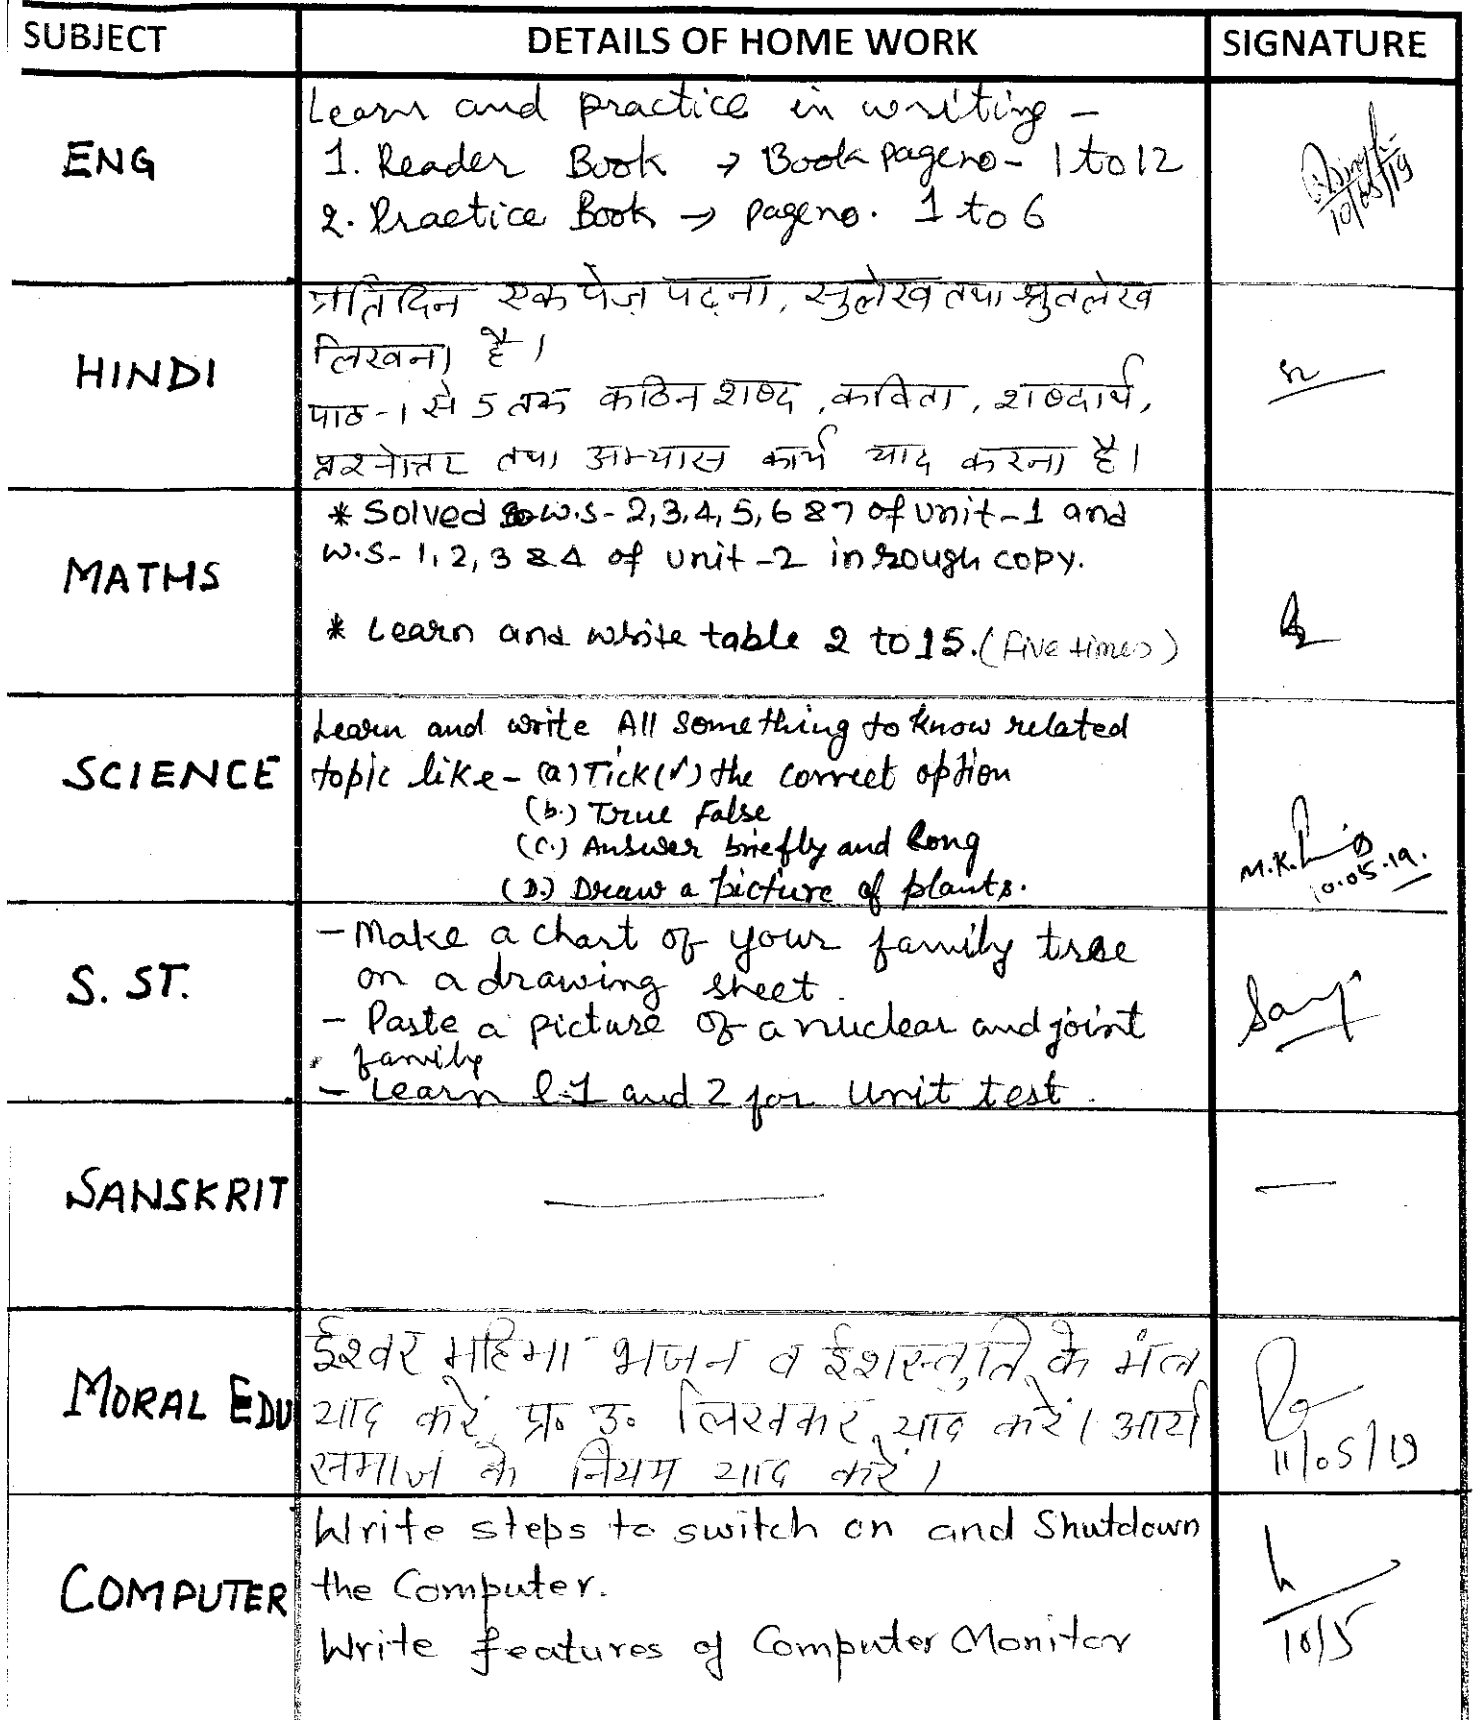 SUBJECT DETAILS OF HOME WORK SIGNATURE
ENG
Learn and practice in writing –
1. Reader Book → Book page no - 1 to 12
2. Practice Book → page no. 1 to 6
10/05/19
HINDI
प्रतिदिन एक पेज़ पढ़ना, सुलेख तथा श्रुतलेख
लिखना है।
पाठ-1 से 5 तक कठिन शब्द, कविता, शब्दार्थ,
प्रश्नोत्तर तथा अभ्यास कार्य याद करना है।
MATHS
* Solved W.S- 2,3,4,5,6 & 7 of unit-1 and
W.S- 1,2,3 & 4 of unit-2 in rough copy.
* Learn and write table 2 to 15. (five times)
SCIENCE
Learn and write All something to know related
topic like – (a) Tick (✓) the correct option
(b.) True False
(C.) Answer briefly and long
(D.) Draw a picture of plants.
M.K.
10.05.19.
S. ST.
– Make a chart of your family tree
on a drawing sheet.
– Paste a picture of a nuclear and joint
family
– Learn l-1 and 2 for Unit test.
SANSKRIT
MORAL EDU
ईश्वर महिमा भजन व ईशस्तुति के मंत्र
याद करें, प्र॰ उ॰ लिखकर याद करें। आर्य
समाज के नियम याद करें।
11/05/19
COMPUTER
Write steps to switch on and Shutdown
the Computer.
Write features of Computer Monitor
10/5